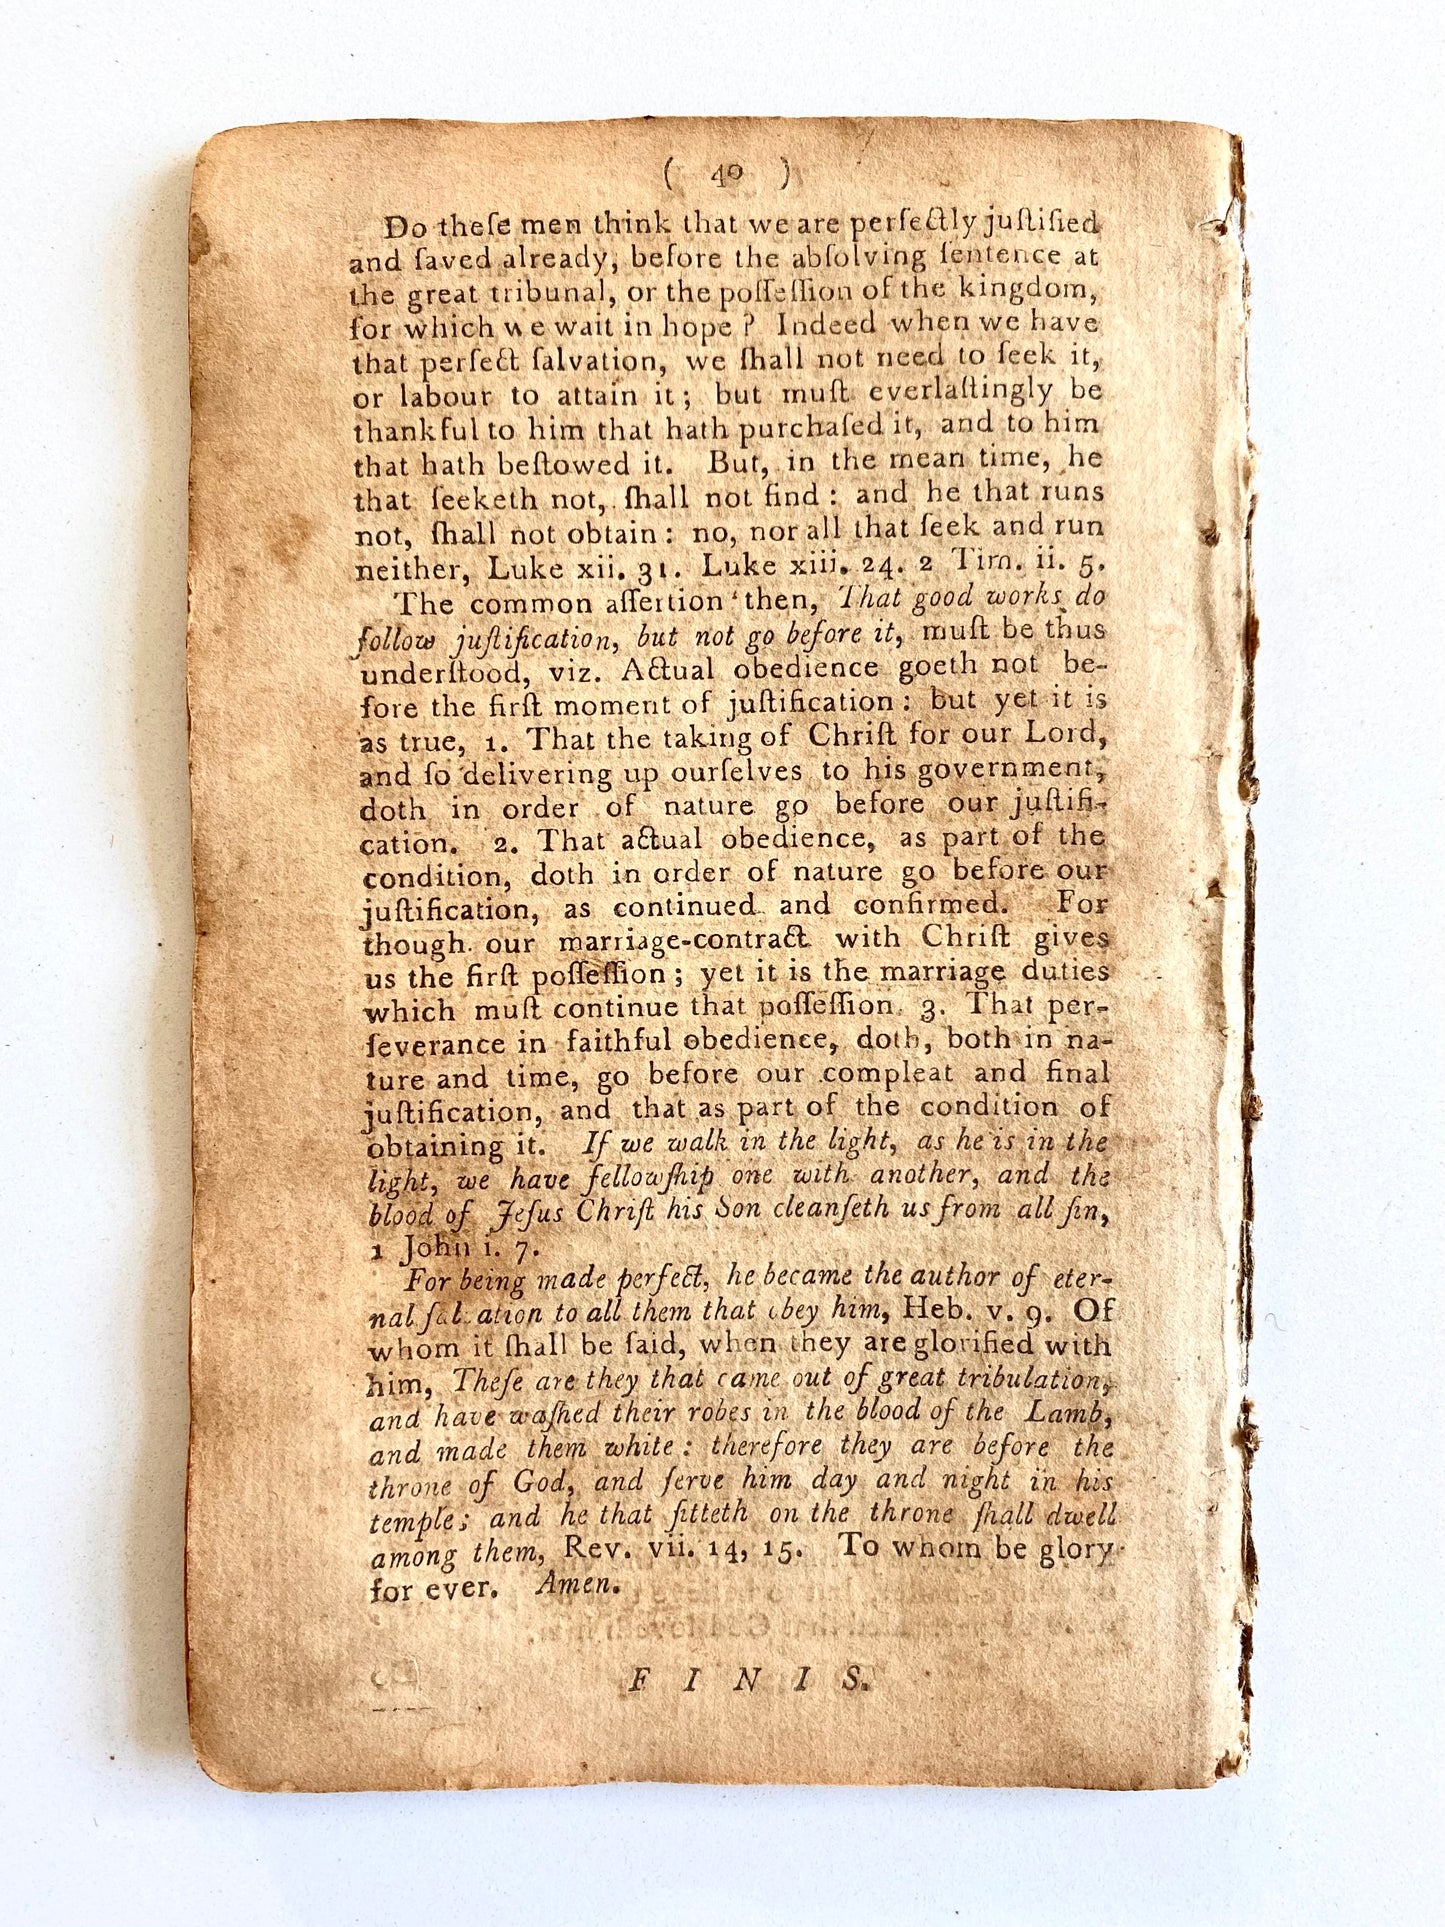 ( 40 )
Do theſe men think that we are perfectly juſtified
and ſaved already, before the abſolving ſentence at
the great tribunal, or the poſſeſſion of the kingdom,
for which we wait in hope? Indeed when we have
that perfect ſalvation, we ſhall not need to ſeek it,
or labour to attain it; but muſt everlaſtingly be
thankful to him that hath purchaſed it, and to him
that hath beſtowed it. But, in the mean time, he
that ſeeketh not, ſhall not find: and he that runs
not, ſhall not obtain: no, nor all that ſeek and run
neither, Luke xii. 31. Luke xiii. 24. 2 Tim. ii. 5.
The common aſſertion then, That good works do
follow juſtification, but not go before it, muſt be thus
underſtood, viz. Actual obedience goeth not be-
fore the firſt moment of juſtification: but yet it is
as true, 1. That the taking of Chriſt for our Lord,
and ſo delivering up ourſelves to his government,
doth in order of nature go before our juſtifi-
cation. 2. That actual obedience, as part of the
condition, doth in order of nature go before our
juſtification, as continued and confirmed. For
though our marriage-contract with Chriſt gives
us the firſt poſſeſſion; yet it is the marriage duties
which muſt continue that poſſeſſion. 3. That per-
ſeverance in faithful obedience, doth, both in na-
ture and time, go before our compleat and final
juſtification, and that as part of the condition of
obtaining it. If we walk in the light, as he is in the
light, we have fellowſhip one with another, and the
blood of Jeſus Chriſt his Son cleanſeth us from all ſin,
1 John i. 7.
For being made perfect, he became the author of eter-
nal ſalvation to all them that obey him, Heb. v. 9. Of
whom it ſhall be ſaid, when they are glorified with
him, Theſe are they that came out of great tribulation,
and have waſhed their robes in the blood of the Lamb,
and made them white: therefore they are before the
throne of God, and ſerve him day and night in his
temple; and he that ſitteth on the throne ſhall dwell
among them, Rev. vii. 14, 15. To whom be glory
for ever. Amen.
F I N I S.